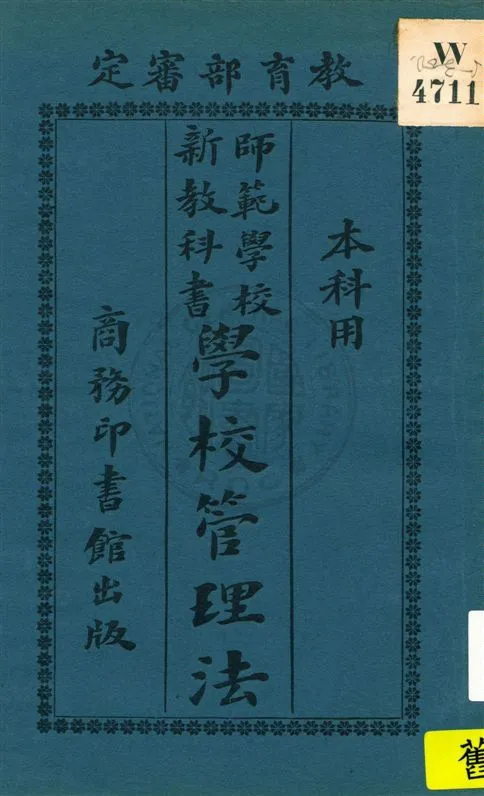 教育部審定
本科用
師範學校
新教科書
學校管理法
商務印書館出版
W
4711
舊